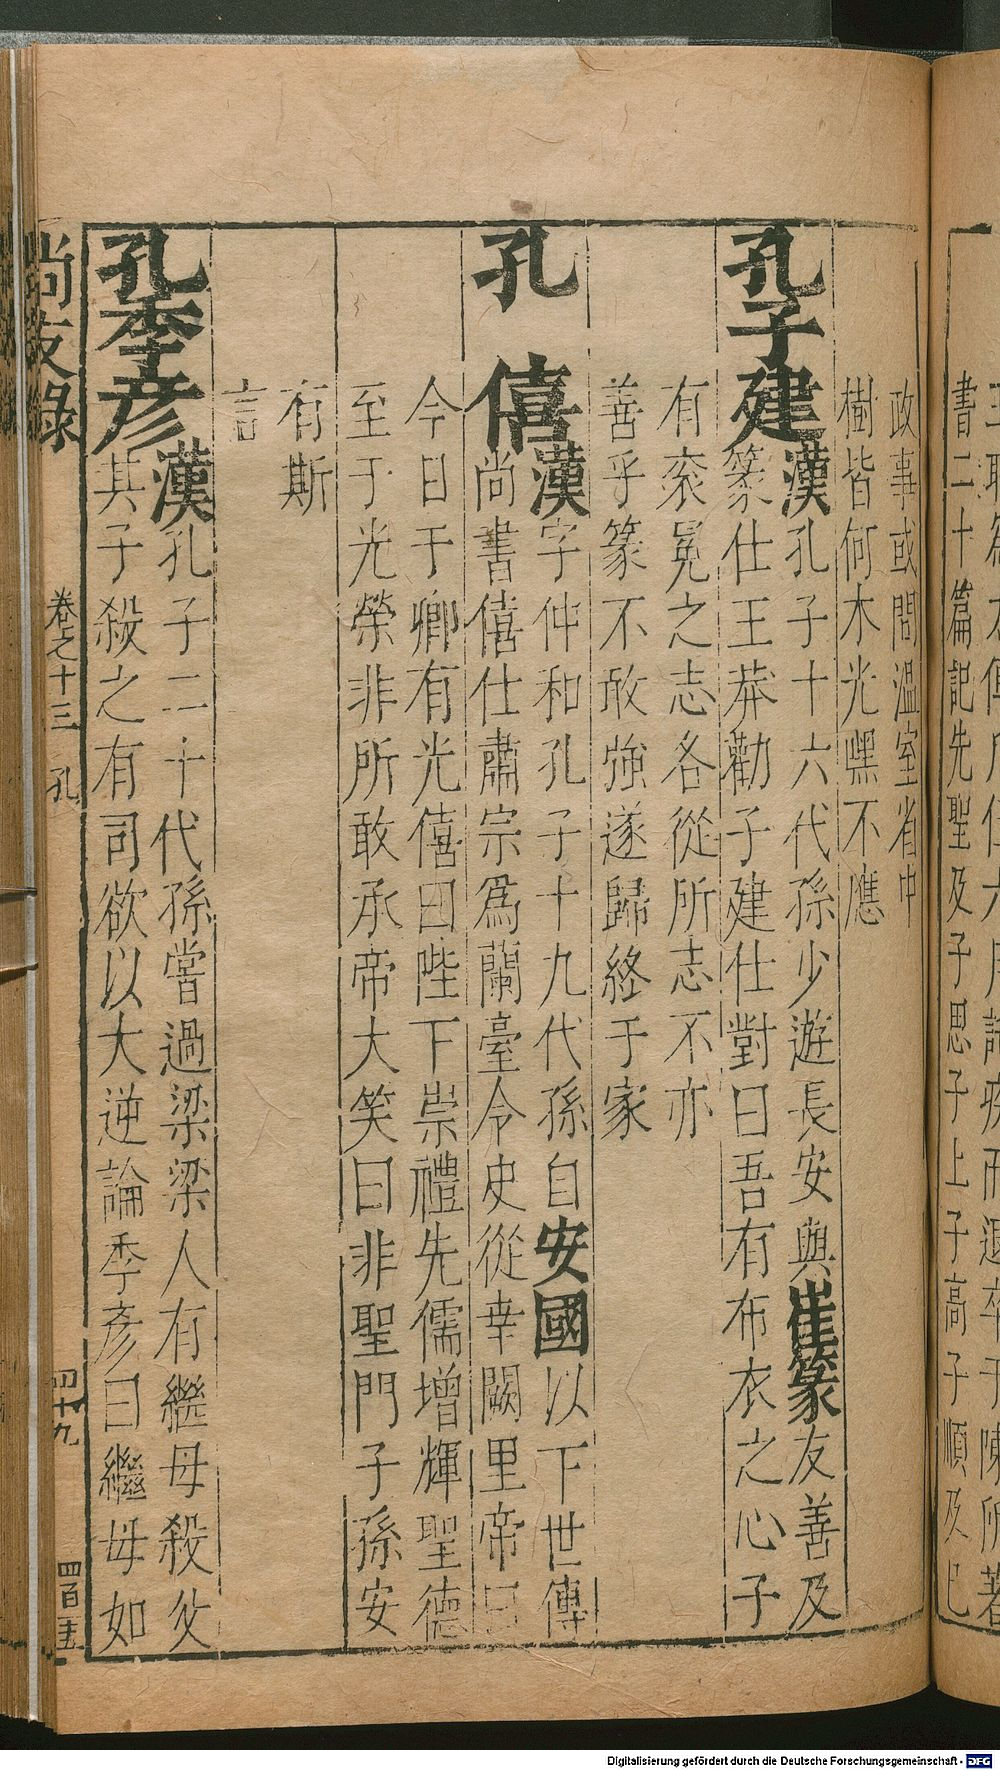 書二十篇記先聖及子思子上子高子順及已
政事或問溫室省中
樹皆何木光嘿不應
孔子建 漢 孔子十六代孫少遊長安與崔篆友善及
篆仕王莽勸子建仕對曰吾有布衣之心子
有衮冕之志各從所志不亦
善乎篆不敢強遂歸終于家
孔僖 漢 字仲和孔子十九代孫自安國以下世傳
尚書僖仕肅宗爲蘭臺令史從幸闕里帝曰
今日于卿有光僖曰陛下崇禮先儒增輝聖德
至于光榮非所敢承帝大笑曰非聖門子孫安
有斯
言
孔季彦 漢 孔子二十代孫嘗過梁梁人有繼母殺父
其子殺之有司欲以大逆論季彥曰繼母如
尚友錄 卷之十三 孔 四十九
Digitalisierung gefördert durch die Deutsche Forschungsgemeinschaft - DFG